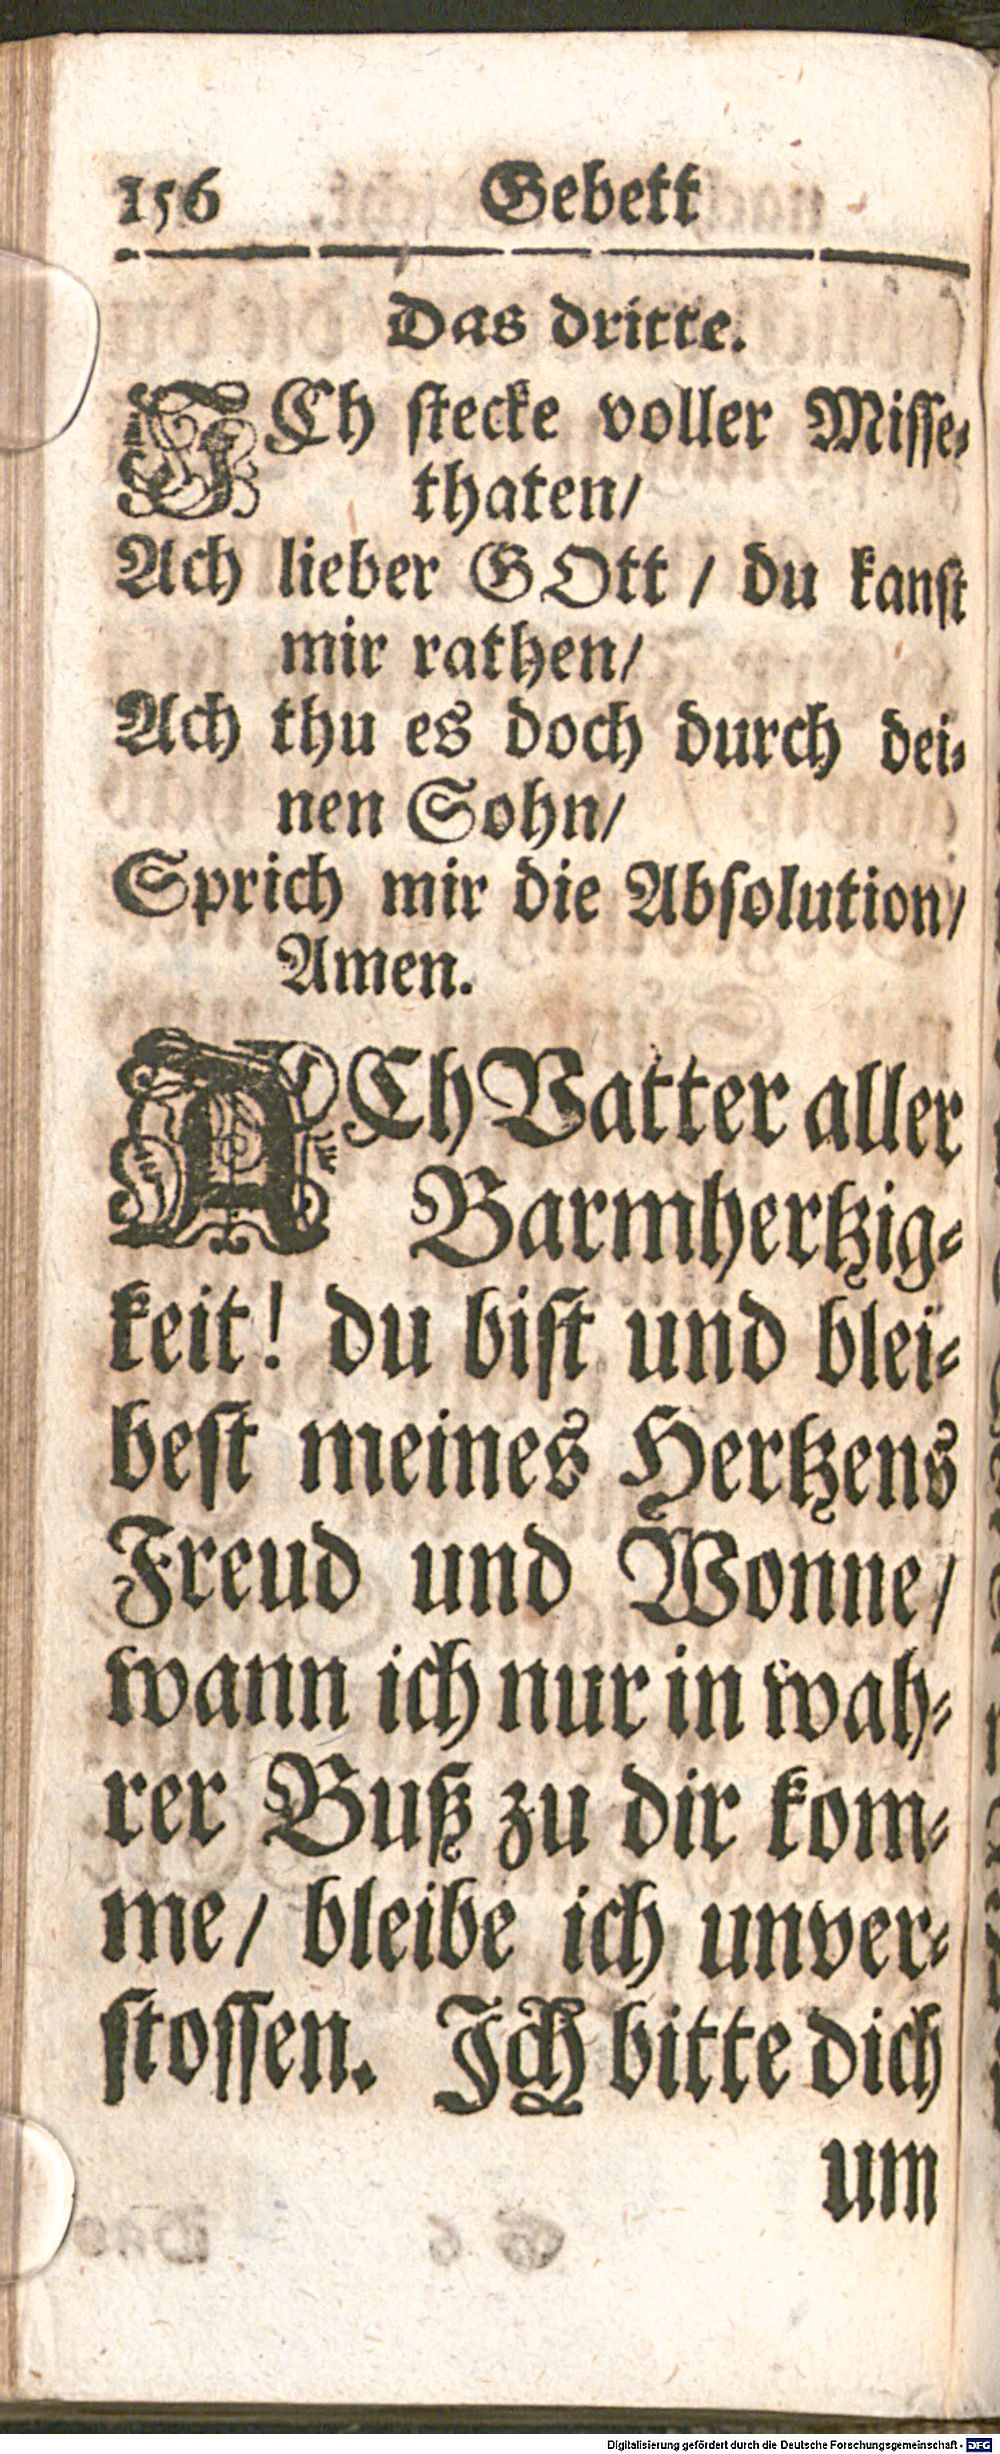 156 Gebett
Das dritte.
ICh stecke voller Misse-
thaten/
Ach lieber GOtt / du kanst
mir rathen/
Ach thu es doch durch dei-
nen Sohn/
Sprich mir die Absolution/
Amen.
ACh Vatter aller
Barmhertzig-
keit! du bist und blei-
best meines Hertzens
Freud und Wonne/
wann ich nur in wah-
rer Buß zu dir kom-
me/ bleibe ich unver-
stossen. Ich bitte dich
um
Digitalisierung gefördert durch die Deutsche Forschungsgemeinschaft - DFG